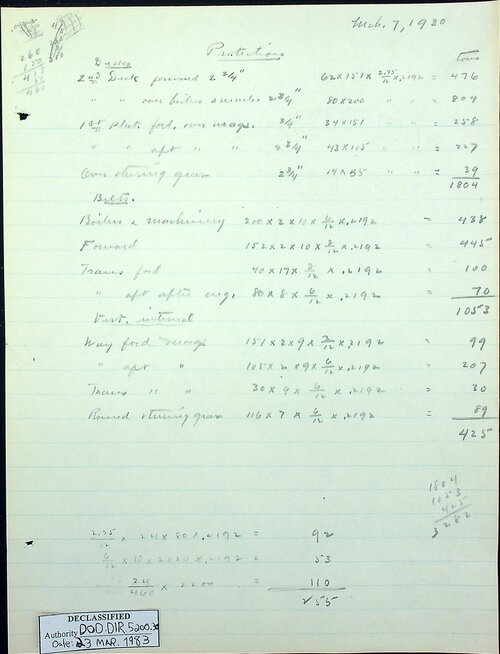 Mch. 7, 1930
Protection
tons
260
Decks
2nd Deck forward 2 3/4" 62x151x 2.75/12 x.2192 = 476
" " over boilers & mach. 2 3/4" 80x200 " " = 804
1st Plat. ford. over mags. 3/4" 34x151 " " = 258
" " aft " " 2 3/4" 43x105 " " = 227
Over steering gear 2 3/4" 14x55 " " = 39
1804
Belts.
Boilers & machinery 200x2x10x 6/12 x.2192 = 438
Forward 152x2x10x 8/12 x.2192 = 445
Trans ford 40x17x 8/12 x.2192 = 100
" aft after eng. 80x8x 6/12 x.2192 = 70
1053
Vert. internal
Way ford mags 151x2x9x 3/12 x.2192 = 99
" aft " 105x2x9x 6/12 x.2192 = 207
Trans " " 30x9x 6/12 x.2192 = 30
Round steering gear 116x7x 6/12 x.2192 = 89
425
1804
1053
425
3282
2.75/12 x 24x80x.2192 = 92
6/12 x10x2x24x.2192 = 53
24/460 x 2200 = 110
255
DECLASSIFIED
Authority DOD.DIR.5200.30
Date: 23 MAR. 1983